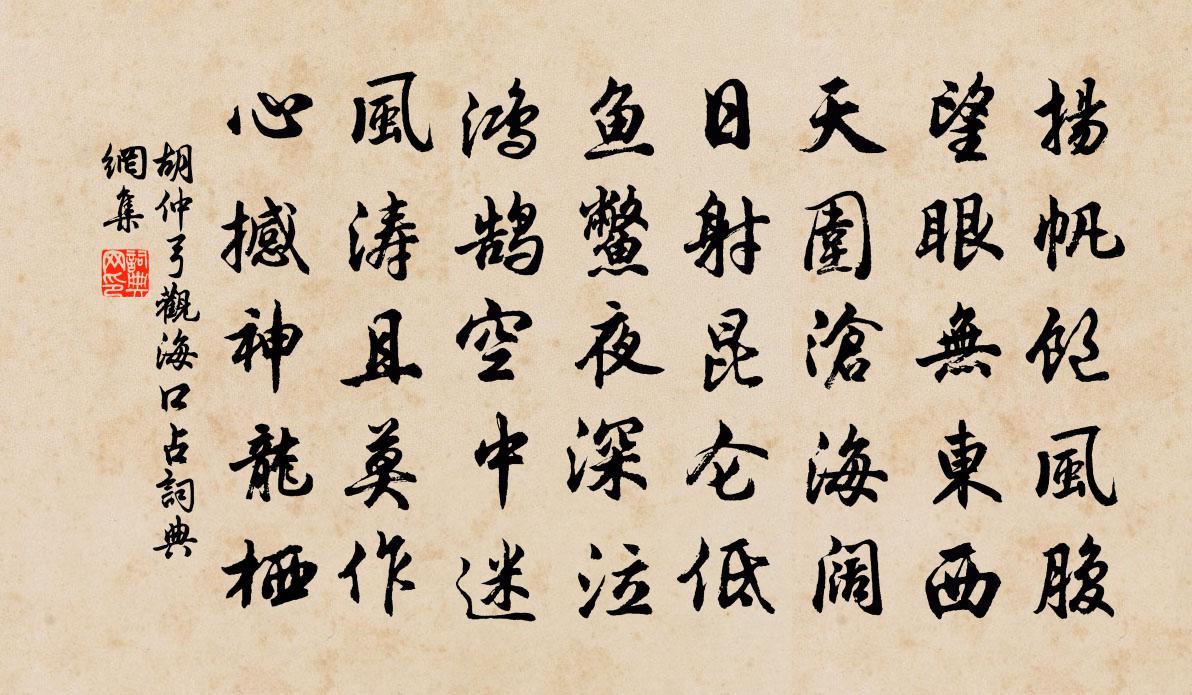 揚帆飽風腹
望眼無東西
天圍滄海阔
日射昆仑低
鱼鱉夜深泣
鸿鹄空中迷
風涛且莫作
心撼神龍栖
胡仲弓觀海口占詞典
網集
詞典
网印